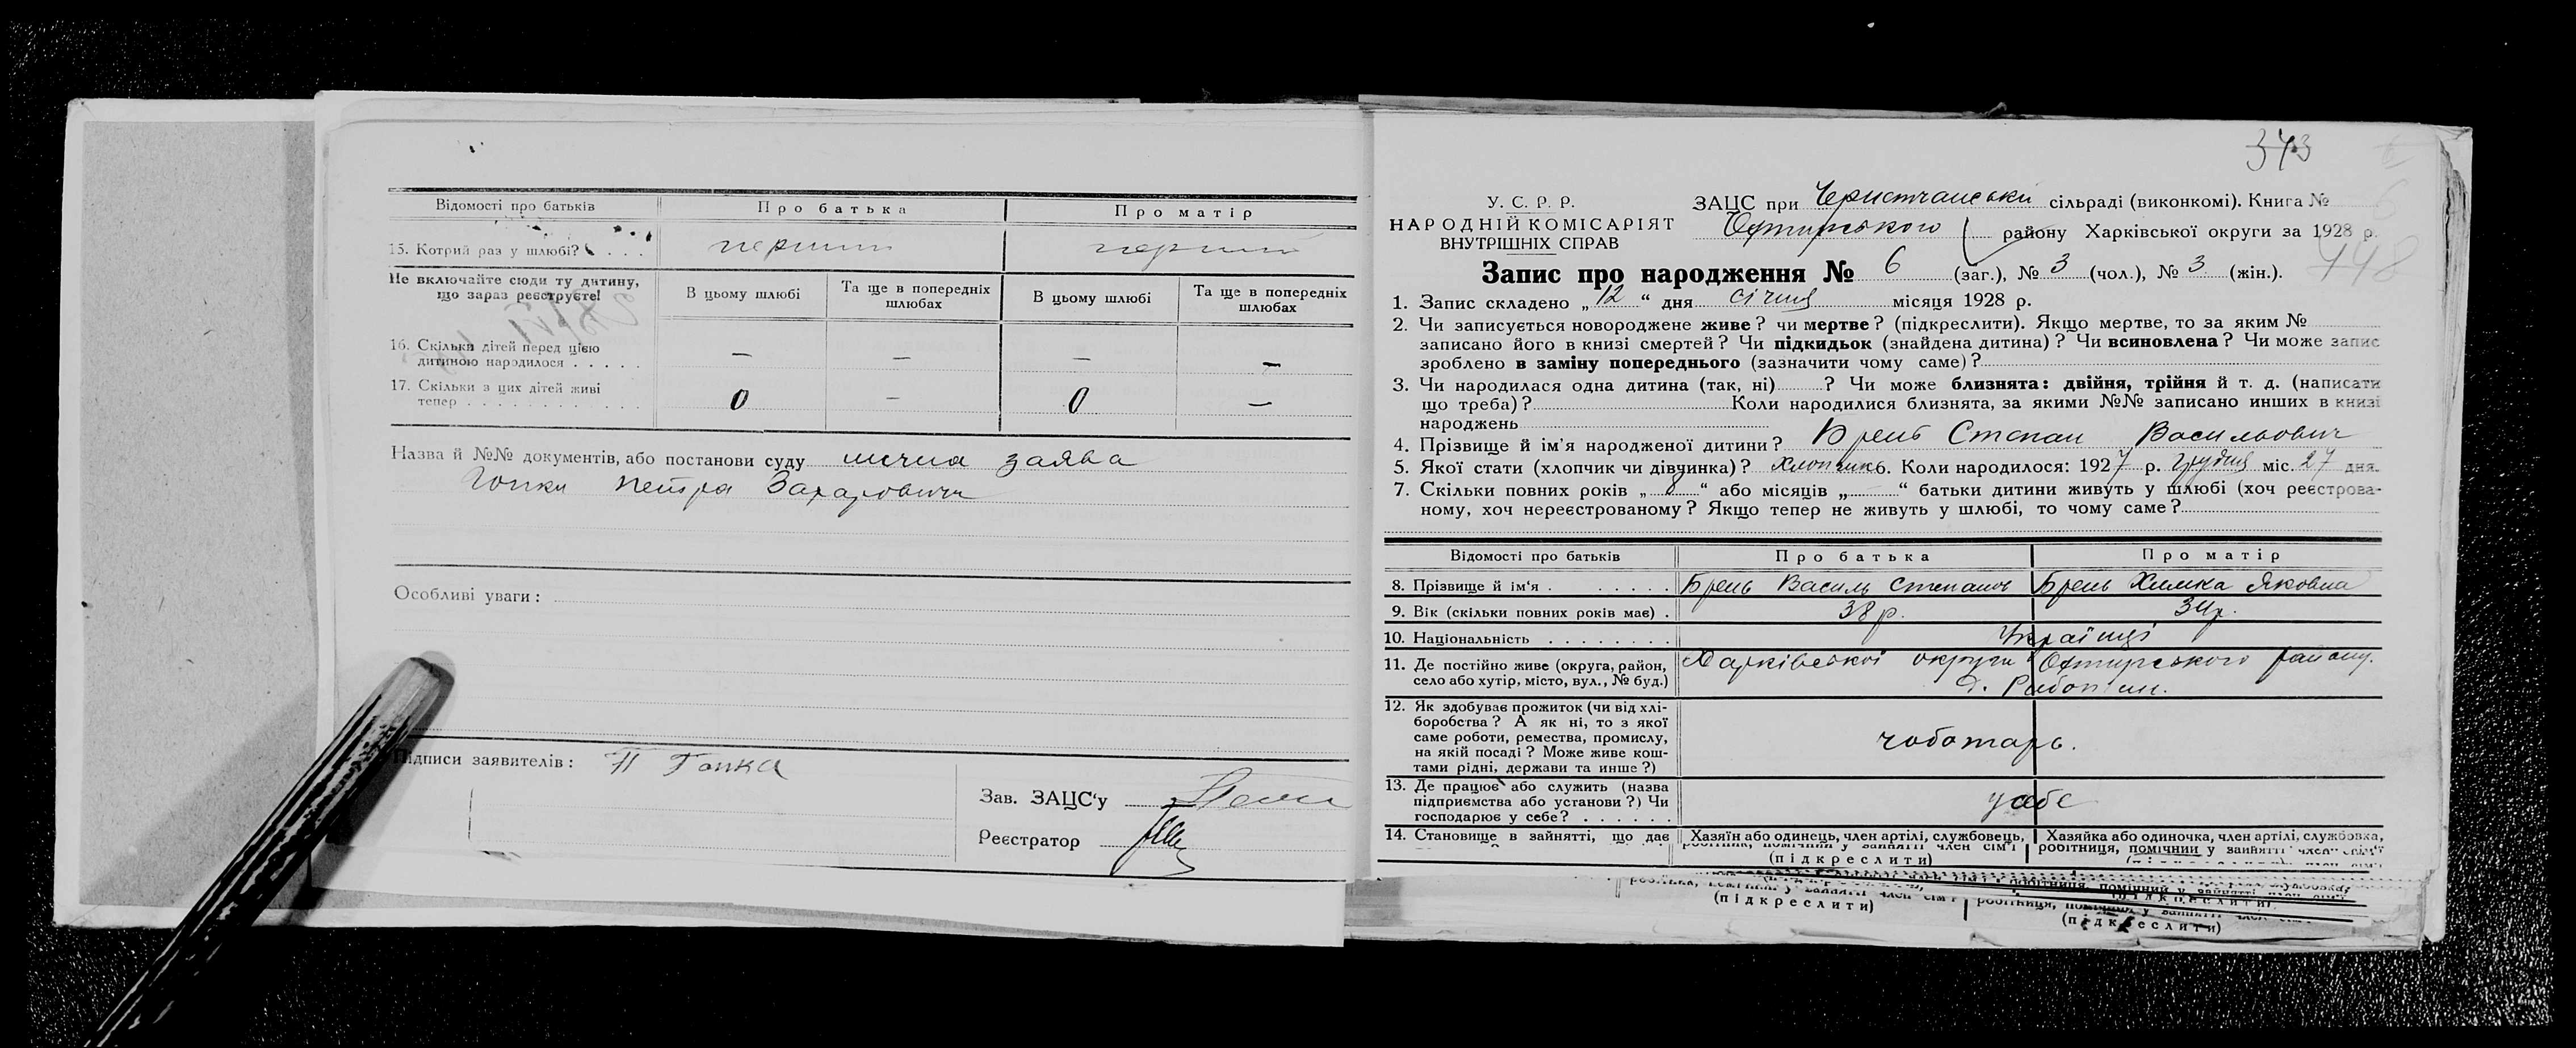 Відомості про батьків Про батька Про матір
15. Котрий раз у шлюбі? . . . перший перший
Не включайте сюди ту дитину, що зараз реєструєте! В цьому шлюбі Та ще в попередніх шлюбах В цьому шлюбі Та ще в попередніх шлюбах
16. Скільки дітей перед цією
дитиною народилося . . . . . — — — —
17. Скільки з цих дітей живі
тепер . . . . . . . . . . . . 0 — 0 —
Назва й №№ документів, або постанови суду лична заява
Гопки Петра Захаровича
Особливі уваги:
Підписи заявителів: П Гопка
Зав. ЗАЦС'у
Реєстратор
343
У. С. Р. Р.
НАРОДНІЙ КОМІСАРІЯТ
ВНУТРІШНІХ СПРАВ
ЗАЦС при сільраді (виконкомі). Книга № 6
Охтирського району Харківської округи за 1928 р.
448
Запис про народження № 6 (заг.), № 3 (чол.), № 3 (жін.).
1. Запис складено „12“ дня січня місяця 1928 р.
2. Чи записується новороджене живе? чи мертве? (підкреслити). Якщо мертве, то за яким №
записано його в книзі смертей? Чи підкидьок (знайдена дитина)? Чи всиновлена? Чи може запис
зроблено в заміну попереднього (зазначити чому саме)?
3. Чи народилася одна дитина (так, ні) ? Чи може близнята: двійня, трійня й т. д. (написати
що треба)? Коли народилися близнята, за якими №№ записано инших в книзі
народжень
4. Прізвище й ім'я народженої дитини? Брень Степан Васильович
5. Якої стати (хлопчик чи дівчинка)? Хлопчик 6. Коли народилося: 1927 р. грудня міс. 27 дня.
7. Скільки повних років „8“ або місяців „ “ батьки дитини живуть у шлюбі (хоч реєстрова-
ному, хоч нереєстрованому? Якщо тепер не живуть у шлюбі, то чому саме?
Відомості про батьків Про батька Про матір
8. Прізвище й ім'я . . . . . . Брень Василь Степанов Брень Химка Яковна
9. Вік (скільки повних років має) . 38 р. 34 р.
10. Національність . . . . . . . . Українці
11. Де постійно живе (округа, район, Харківської округи Охтирського району.
село або хутір, місто, вул., № буд.)
12. Як здобуває прожиток (чи від хлі-
боробства? А як ні, то з якої
саме роботи, ремества, промислу,
на якій посаді? Може живе кош-
тами рідні, держави та инше?)
чоботарь.
13. Де працює або служить (назва
підприємства або установи?) Чи
господарює у себе? . . . . . .
у себе
14. Становище в зайнятті, що дає Хазяїн або одинець, член артілі, службовець, Хазяйка або одиночка, член артілі, службовка,
робітник, помічний у зайнятті член сім'ї робітниця, помічний у зайнятті член сім'ї
(підкреслити)
(підкреслити) (підкреслити)